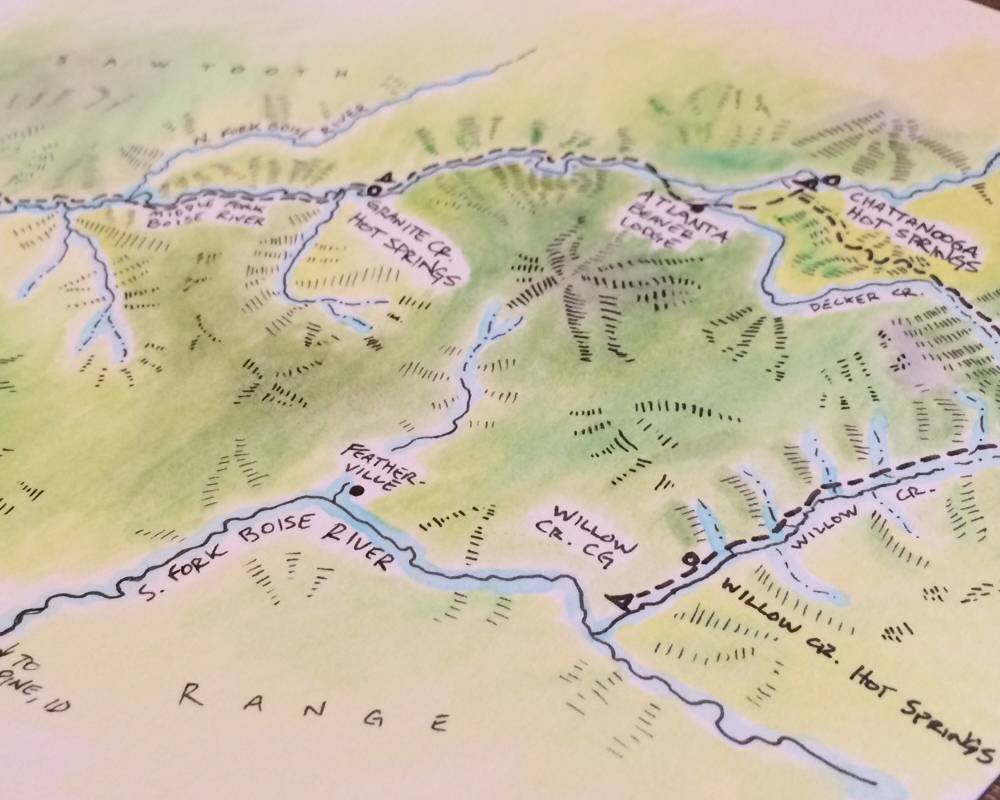 SAWTOOTH
N. FORK BOISE RIVER
MIDDLE FORK
BOISE RIVER
GRANITE CR.
HOT SPRINGS
ATLANTA
BEAVER
LODGE
CHATTANOOGA
HOT SPRINGS
DECKER CR.
FEATHER-
VILLE
S. FORK BOISE RIVER
WILLOW
CR. CG
WILLOW CR.
WILLOW CR. HOT SPRINGS
TO
PINE, ID
RANGE